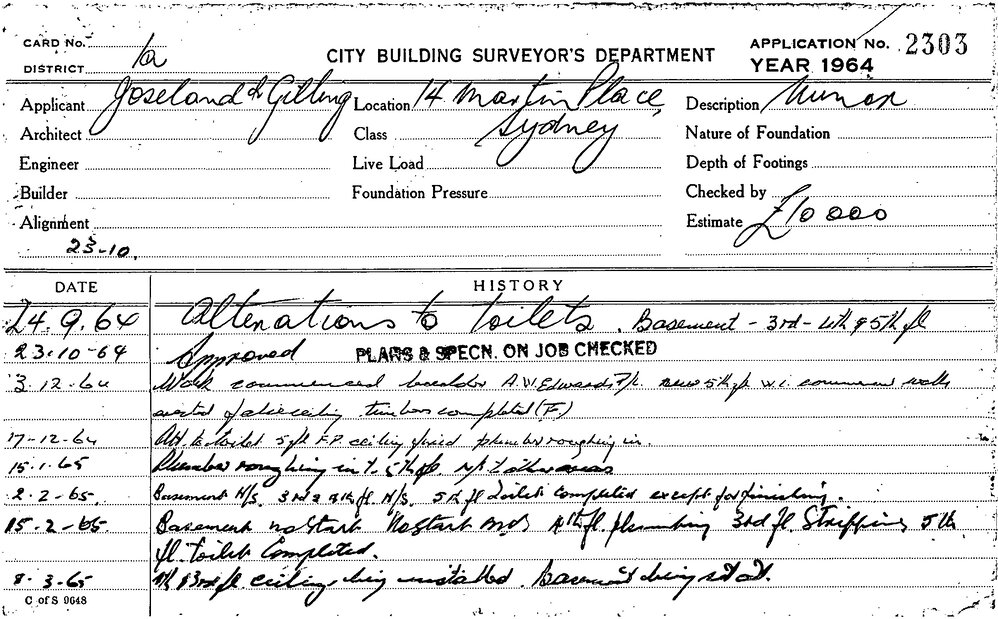 CARD No.
DISTRICT
CITY BUILDING SURVEYOR'S DEPARTMENT
APPLICATION No. 2303
YEAR 1964
Applicant Joseland & Gilling
Location 14 Martin Place,
Sydney
Description Minor
Architect
Class
Nature of Foundation
Engineer
Live Load
Depth of Footings
Builder
Foundation Pressure
Checked by
Alignment
Estimate £10000
23-10.
DATE HISTORY
24.9.64 Alterations to toilets. Basement - 3rd - 4th & 5th fl
23-10-64 Approved PLANS & SPECN. ON JOB CHECKED
3.12.64 Work commenced builder A.W. Edwards P/L. new 5th fl w.c. walls
erected ceiling timbers completed (F)
17-12-64 toilet 5 fl F.P. ceiling fixed plumber roughing in.
15.1.65 Plumber roughing in 5th fl. N/S other areas
2-2-65. Basement N/S. 3rd & 4th fl. N/S. 5th fl Toilet Completed except for finishing.
15-2-65 Basement no start 4th fl. plumbing 3rd fl. Stripping 5th
fl. toilet Completed.
8.3.65 4th & 3rd fl. ceilings being installed. Basement being
C of S 9648